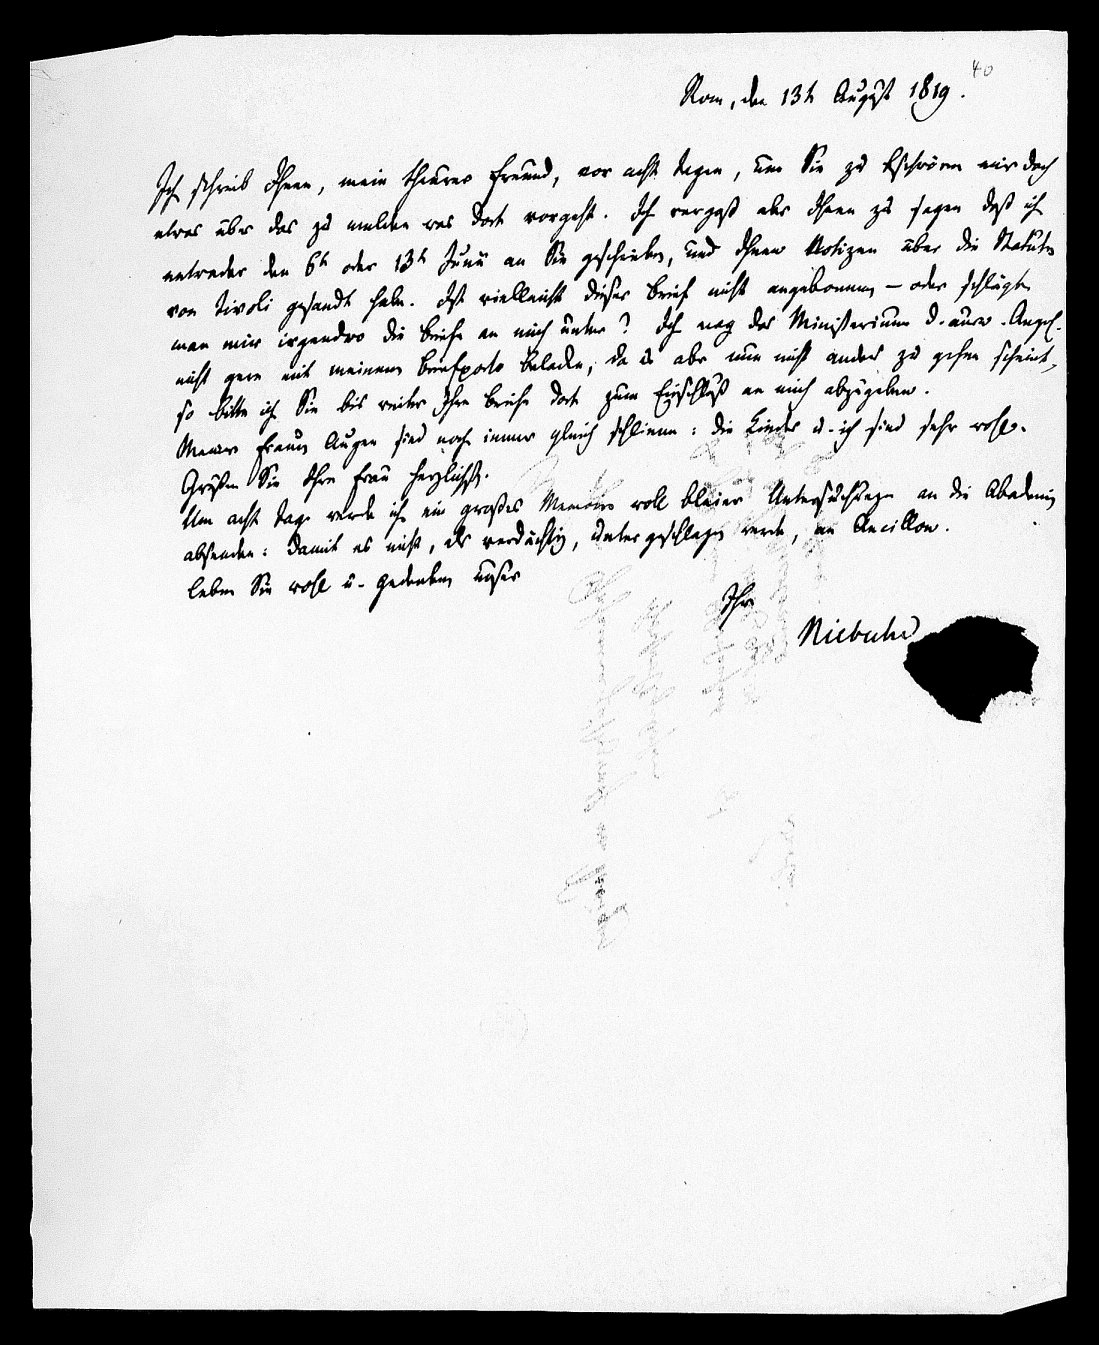 40
Rom, den 13t August 1819.
Ich schrieb Ihnen, mein theurer Freund, vor acht Tagen, um Sie zu beschwören mir doch
etwas über das zu melden was dort vorgeht. Ich vergaß aber Ihnen zu sagen daß ich
entweder den 6t oder 13t Junii an Sie geschrieben, und Ihnen Notizen über die Statuten
von Tivoli gesandt habe. Ist vielleicht dieser Brief nicht angekommen – oder schlägt
man mir irgendwo die Briefe an mich unter? Ich mag das Ministerium d. ausw. Angel.
nicht gern mit meinem Briefporto beladen, da es aber nun nicht anders zu gehen scheint,
so bitte ich Sie bis weiter Ihre Briefe dort zum Einschluß an mich abzugeben.
Meiner Frauen Augen sind noch immer gleich schlimm: die Kinder u. ich sind sehr wohl.
Grüßen Sie Ihre Frau herzlichst.
Um acht Tage werde ich ein großes Memoire voll kleiner Untersuchungen an die Akademie
absenden: damit es nicht, als verdächtig, untergeschlagen werde, an Ancillon.
Leben Sie wohl u. gedenken unser
Ihr
Niebuhr